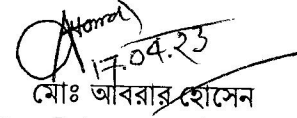 17.04.23
মোঃ আবরার হোসেন